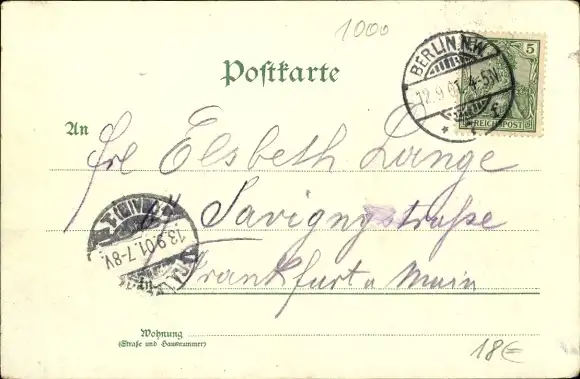 1000
Postkarte
BERLIN, N.W.
12.9.01. 4-5N.
f.
5
REICHSPOST
An
Frl Elsbeth Lange
Savignystraße
13.9.01. 7-8V.
Frankfurt a Main
Wohnung
(Straße und Hausnummer)
18€